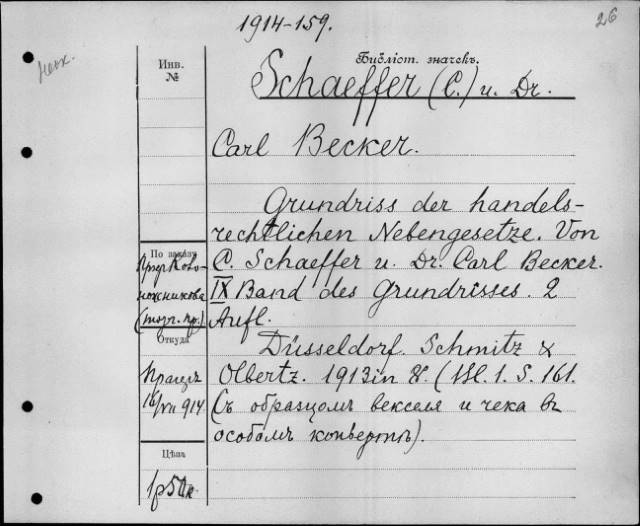 1914-159.
26
Неюк.
Инв.
№
Библіот. значекъ.
Schaeffer (C.) u. Dr.
Carl Becker.
Grundriss der handels-
rechtlichen Nebengesetze. Von
C. Schaeffer u. Dr. Carl Becker.
IX Band des Grundrisses. 2
Aufl.
Düsseldorf. Schmitz &
Olbertz. 1913 in 8. ( Bl. 1. S. 161.
(съ образцомъ векселя и чека въ
особомъ конвертѣ).
По заказу
проф Ково-
ножникова
(торг. пр.)
Откуда
Працъ
16/VII 914
Цѣна
1р 50к